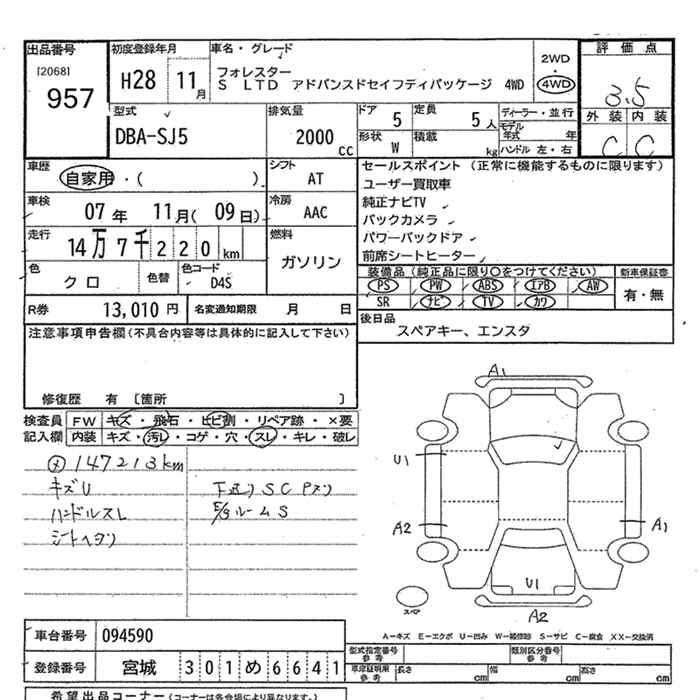 出品番号
[2068]
957
初度登録年月
H28 11月
車名・グレード
フォレスター
S LTD アドバンスドセイフティパッケージ 4WD
2WD
・
4WD
評価点
3.5
外装 内装
C C
型式
DBA-SJ5
排気量
2000 CC
ドア 5
定員 5人
形状 W
積載 kg
ディーラー・並行
モデル年式 年
ハンドル 左・右
車歴
自家用・( )
シフト
AT
車検
07年 11月(09日)
冷房
AAC
走行
14万7千220km
燃料
ガソリン
色
クロ
色替
色コード
D4S
R券 13,010円
名変通知期限 月 日
セールスポイント(正常に機能するものに限ります)
ユーザー買取車
純正ナビTV
バックカメラ
パワーバックドア
前席シートヒーター
装備品(純正品に限り○をつけてください)
新車保証書
PS PW ABS エアB AW
SR ナビ TV カワ
有・無
後日品
スペアキー、エンスタ
注意事項申告欄(不具合内容等は具体的に記入して下さい)
修復歴 有 [箇所 ]
検査員記入欄
FW キズ・飛石・ヒビ割・リペア跡・×要
内装 キズ・汚レ・コゲ・穴・スレ・キレ・破レ
147213km
キズU
ハンドルスレ
シートヘタリ
下廻りSC
E/GルームS
A1
U1
A2
A1
U1
スペア
A2
A−キズ E−エクボ U−凹み W−補修跡 S−サビ C−腐食 XX−交換済
車台番号 094590
登録番号 宮城 301め6641
型式指定番号 参考
類別区分番号 参考
車庫証明用 参考
長さ cm
幅 cm
高さ cm
希望出品コーナー(コーナーは各会場により異なります。)